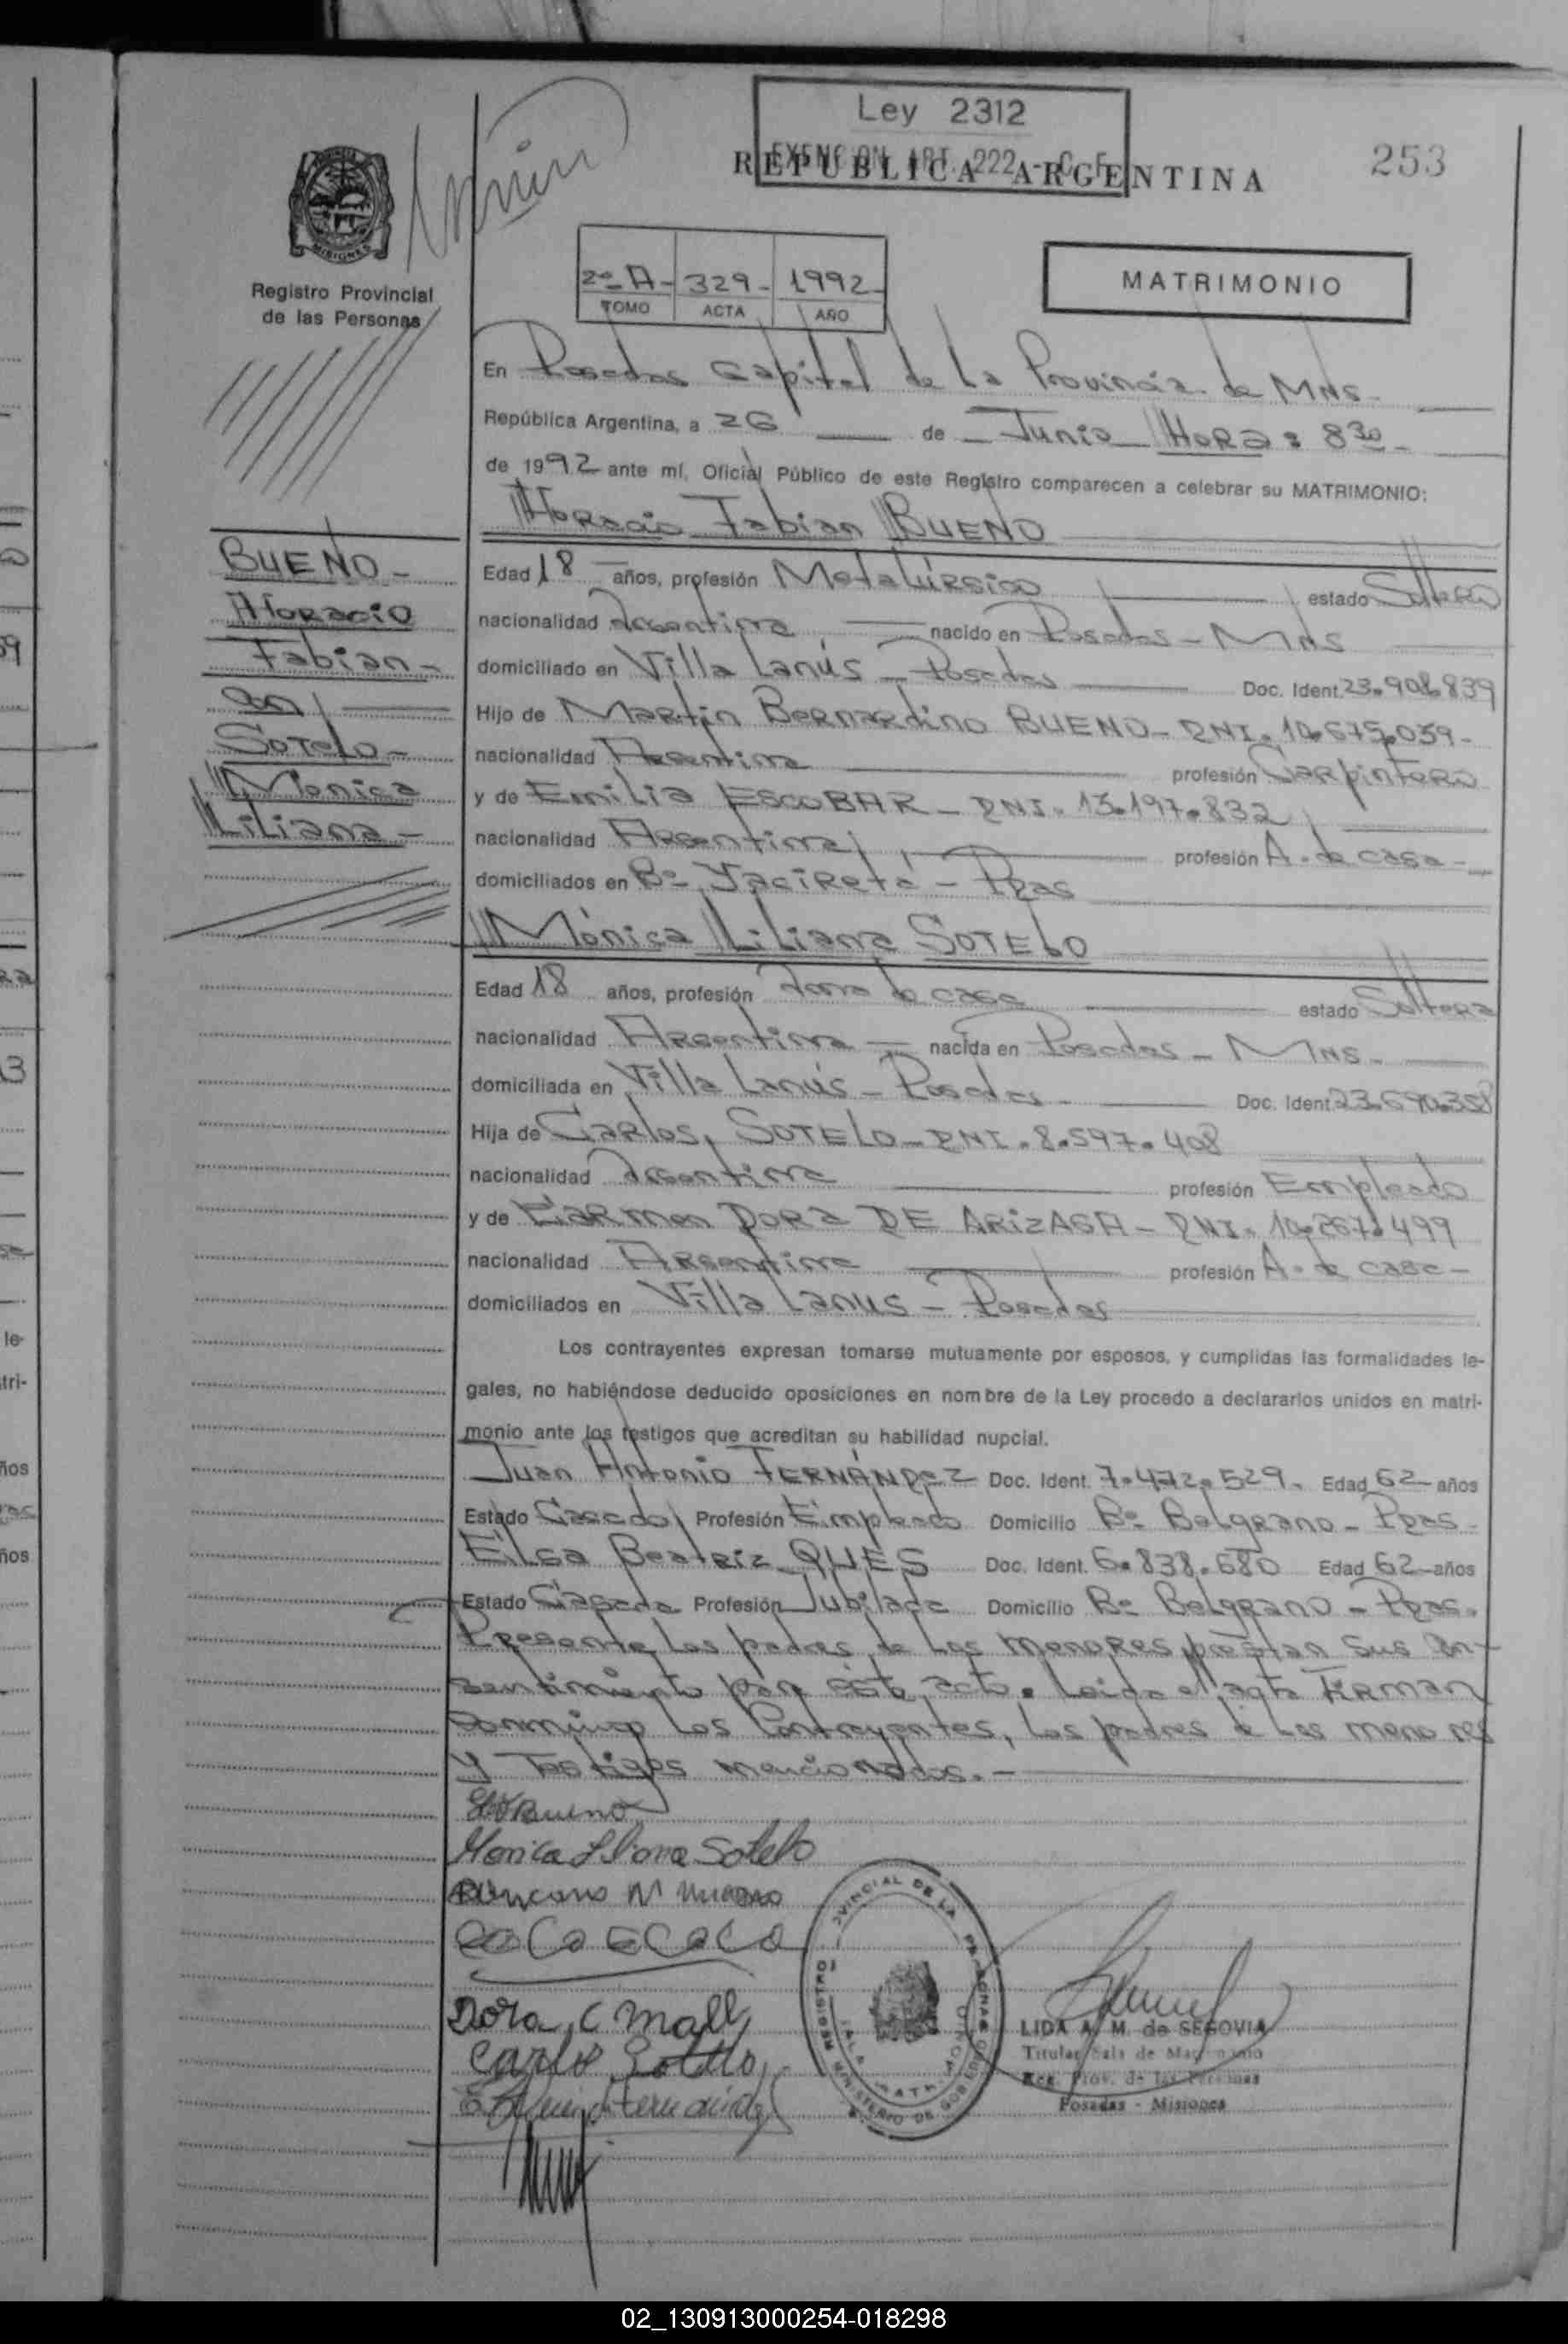 Ley 2312
EXENCION ART. 222 - C. F.
REPUBLICA ARGENTINA
253
MISIONES
Registro Provincial
de las Personas
2º A - 329 - 1992 -
TOMO ACTA AÑO
MATRIMONIO
En Posadas Capital de La Provincia de MNS -
República Argentina, a 26 de Junio HORA: 8 30 -
de 1992 ante mí, Oficial Público de este Registro comparecen a celebrar su MATRIMONIO:
Horacio Fabian BUENO
BUENO -
Horacio
Fabian -
con
Sotelo -
Monica
Liliana -
Edad 18 años, profesión Metalúrgico estado Soltero
nacionalidad Argentina nacido en Posadas - MNS
domiciliado en Villa Lanús - Posadas Doc. Ident. 23.908.839
Hijo de Martin Bernardino BUENO - DNI. 10.675.039 -
nacionalidad Argentina profesión Carpintero
y de Emilia ESCOBAR - DNI. 13.197.832
nacionalidad Argentina profesión A. de casa -
domiciliados en Bº Yaciretá - Pdas
Mónica Liliana SOTELO
Edad 18 años, profesión Ama de casa estado Soltera
nacionalidad Argentina nacida en Posadas - MNS -
domiciliada en Villa Lanús - Posadas - Doc. Ident.
Hija de Carlos, SOTELO - DNI. 8.597.408
nacionalidad Argentina profesión Empleado
y de Carmen DORA DE ARIZAGA - DNI. 10.267.499
nacionalidad Argentina profesión A. de casa -
domiciliados en Villa Lanus - Posadas
Los contrayentes expresan tomarse mutuamente por esposos, y cumplidas las formalidades le-
gales, no habiéndose deducido oposiciones en nombre de la Ley procedo a declararlos unidos en matri-
monio ante los testigos que acreditan su habilidad nupcial.
Juan Antonio FERNÁNDEZ Doc. Ident. 7.472.529. Edad 62 años
Estado Casado Profesión Empleado Domicilio Bº Belgrano - Pdas -
Elsa Beatriz QUES Doc. Ident. 6.838.680 Edad 62 años
Estado Casada Profesión Jubilada Domicilio Bº Belgrano - Pdas.
Presente los padres de los menores prestan sus con-
sentimiento para éste acto. Leida el acta Firman
conmigo los Contrayentes, los padres de los menores
y Testigos mencionados. -
Bueno
Monica Liliana Sotelo
Dora C
Carlos Sotelo
Fernández
REGISTRO PROVINCIAL DE LAS PERSONAS
MINISTERIO DE GOBIERNO
LIDA A. M. de SEGOVIA
Titular Sala de Matrimonio
Reg. Prov. de las Personas
Posadas - Misiones
02_130913000254-018298